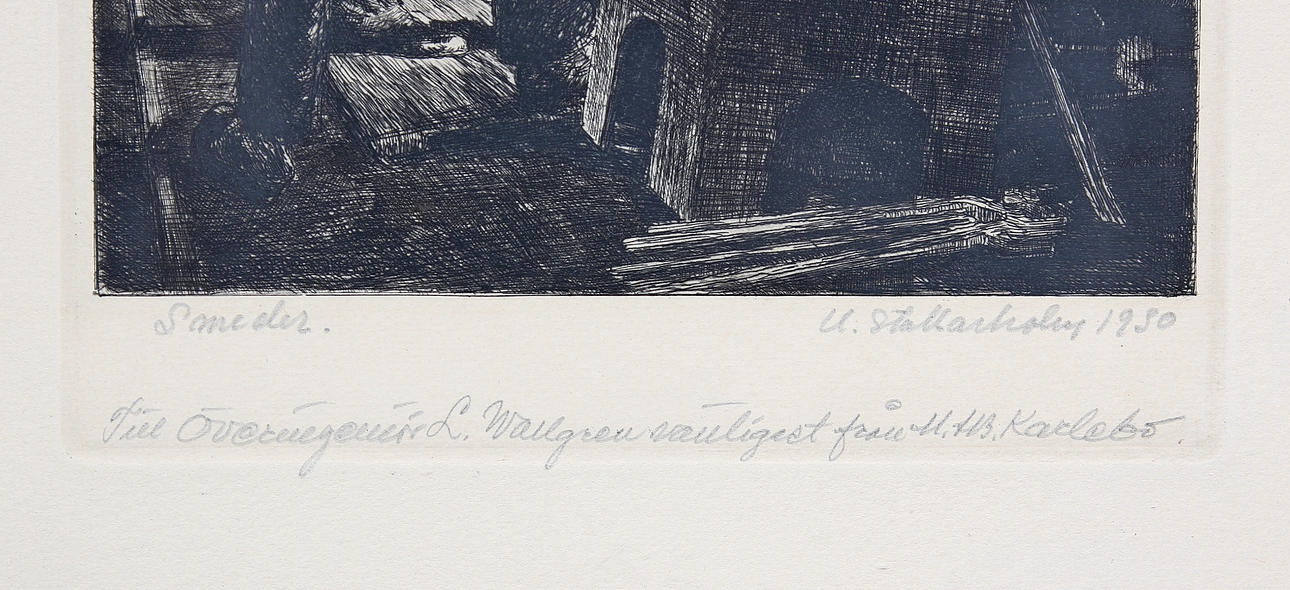 Smeder. U. Stallarholm 1930
Till Överingeniör L. Wallgren vänligest från M.AB. Karlebo.